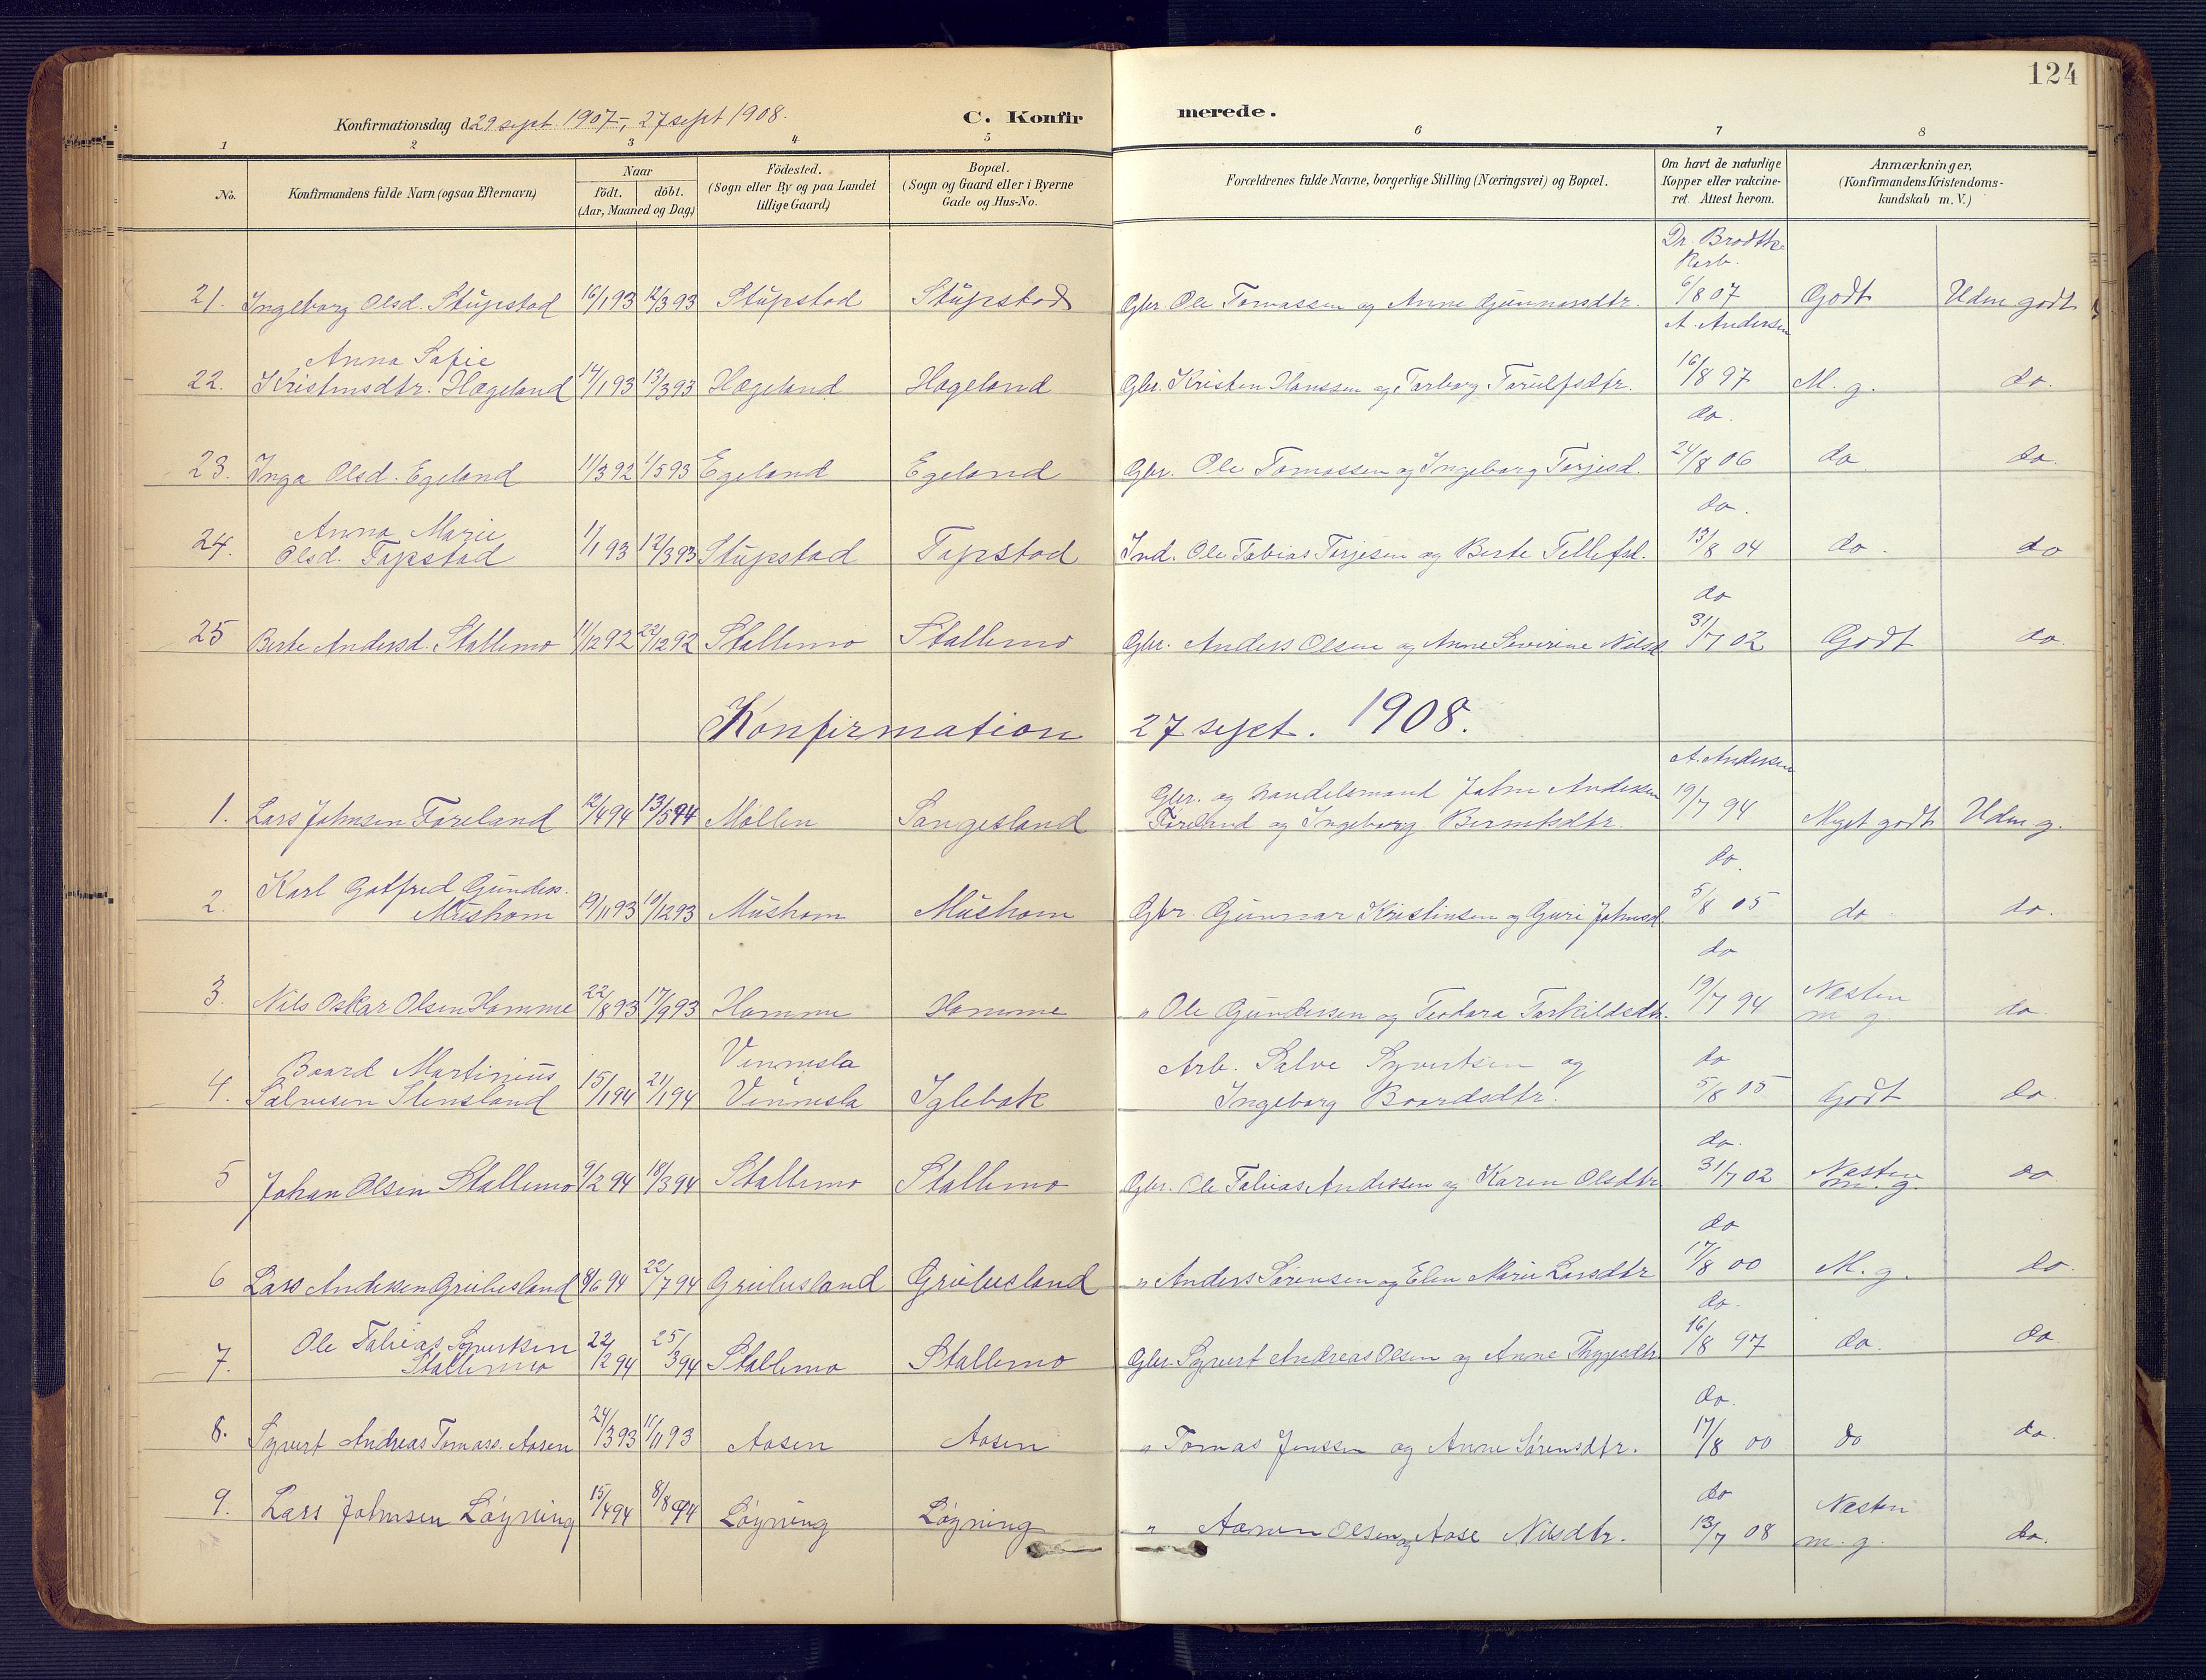 124
Konfirmationsdag d. 29 sept. 1907, 27 sept 1908.
C. Konfirmerede.
1 2 3 4 5 6 7 8
No.
Konfirmandens fulde Navn (ogsaa Efternavn)
Naar
födt. döbt.
(Aar, Maaned og Dag)
Födested.
(Sogn eller By og paa Landet
tillige Gaard)
Bopæl.
(Sogn og Gaard eller i Byerne
Gade og Hus-No.
Forældrenes fulde Navne, borgerlige Stilling (Næringsvei) og Bopæl.
Om havt de naturlige
Kopper eller vakcine-
ret. Attest herom.
Anmærkninger,
(Konfirmandens Kristendoms-
kundskab m. V.)
Dr. Brodtk
Korb.
21. Ingeborg Olsd. Stupstad 16/1 93 12/3 93 Stupstad Stupstad Gbr. Ole Tomassen og Anne Gunnarsdtr. 6/8 07 Godt Udm godt
A. Andersen
Anna Sofie
22. Kristensdtr. Hægeland 14/1 93 13/3 93 Hægeland Hægeland Gbr. Kristen Hanssen og Torborg Torulfsdtr. 16/8 97 M. g. do.
do.
23. Inga Olsd. Egeland 11/3 92 1/5 93 Egeland Egeland Gbr. Ole Tomassen og Ingeborg Terjesd. 24/8 06 do do.
do.
Anna Marie
24. Olsd. Tapstad 1/1 93 12/3 93 Stupstad Tapstad Ind. Ole Tobias Terjesen og Berte Tellefsd. 13/8 04 do. do
do
25 Berte Andersd. Stallemo 11/12 92 22/12 92 Stallemo Stallemo Gbr. Anders Olsen og Anne Severine Nilsd 31/7 02 Godt do.
Konfirmation 27 sept. 1908.
A. Andersen
Gbr. og Handelsmand John Andersen
1. Lars Johnsen Føreland 12/4 94 13/5 94 Mollen Sangesland Føreland og Ingeborg Berntsdtr. 19/7 94 Meget godt Udm g.
do.
Karl Gotfred Gunders.
2. Mushom 19/11 93 10/12 93 Mushom Mushom Gbr Gunnar Kristensen og Guri Johnsd. 5/8 05 do do.
do
3. Nils Oskar Olsen Homme 22/8 93 17/9 93 Homme Homme " Ole Gundersen og Teodora Torkildsdtr. 19/7 94 Næsten m g. do.
Baard Martinius Vennesla Arb. Salve Syvertsen og do
4. Salvesen Stensland 15/1 94 21/1 94 Vennesla Iglebæk Ingeborg Baardsdtr. 5/8 05 Godt do
do.
5 Johan Olsen Stallemo 9/2 94 18/3 94 Stallemo Stallemo Gbr. Ole Tobias Andersen og Karen Olsdtr 31/7 02 Næsten m. g. do.
do
6 Lars Andersen Grubesland 8/6 94 22/7 94 Grubesland Grubesland " Anders Sørensen og Elen Marie Larsdtr 17/8 00 M. g. do.
do.
Ole Tobias Syvertsen
7. Stallemo 22/2 94 25/3 94 Stallemo Stallemo Gbr. Syvert Andreas Olsen og Anne Thygesdtr. 16/8 97 do. do.
do.
8. Syvert Andreas Tomass. Aasen 24/3 93 11/11 93 Aasen Aasen " Tomas Jenssen og Anne Sørensdtr. 17/8 00 do do.
do Næsten
9. Lars Johnsen Løyning 15/4 94 8/8 94 Løyning Løyning " Aanen Olsen og Aase Nilsdtr. 13/7 08 m. g. do.